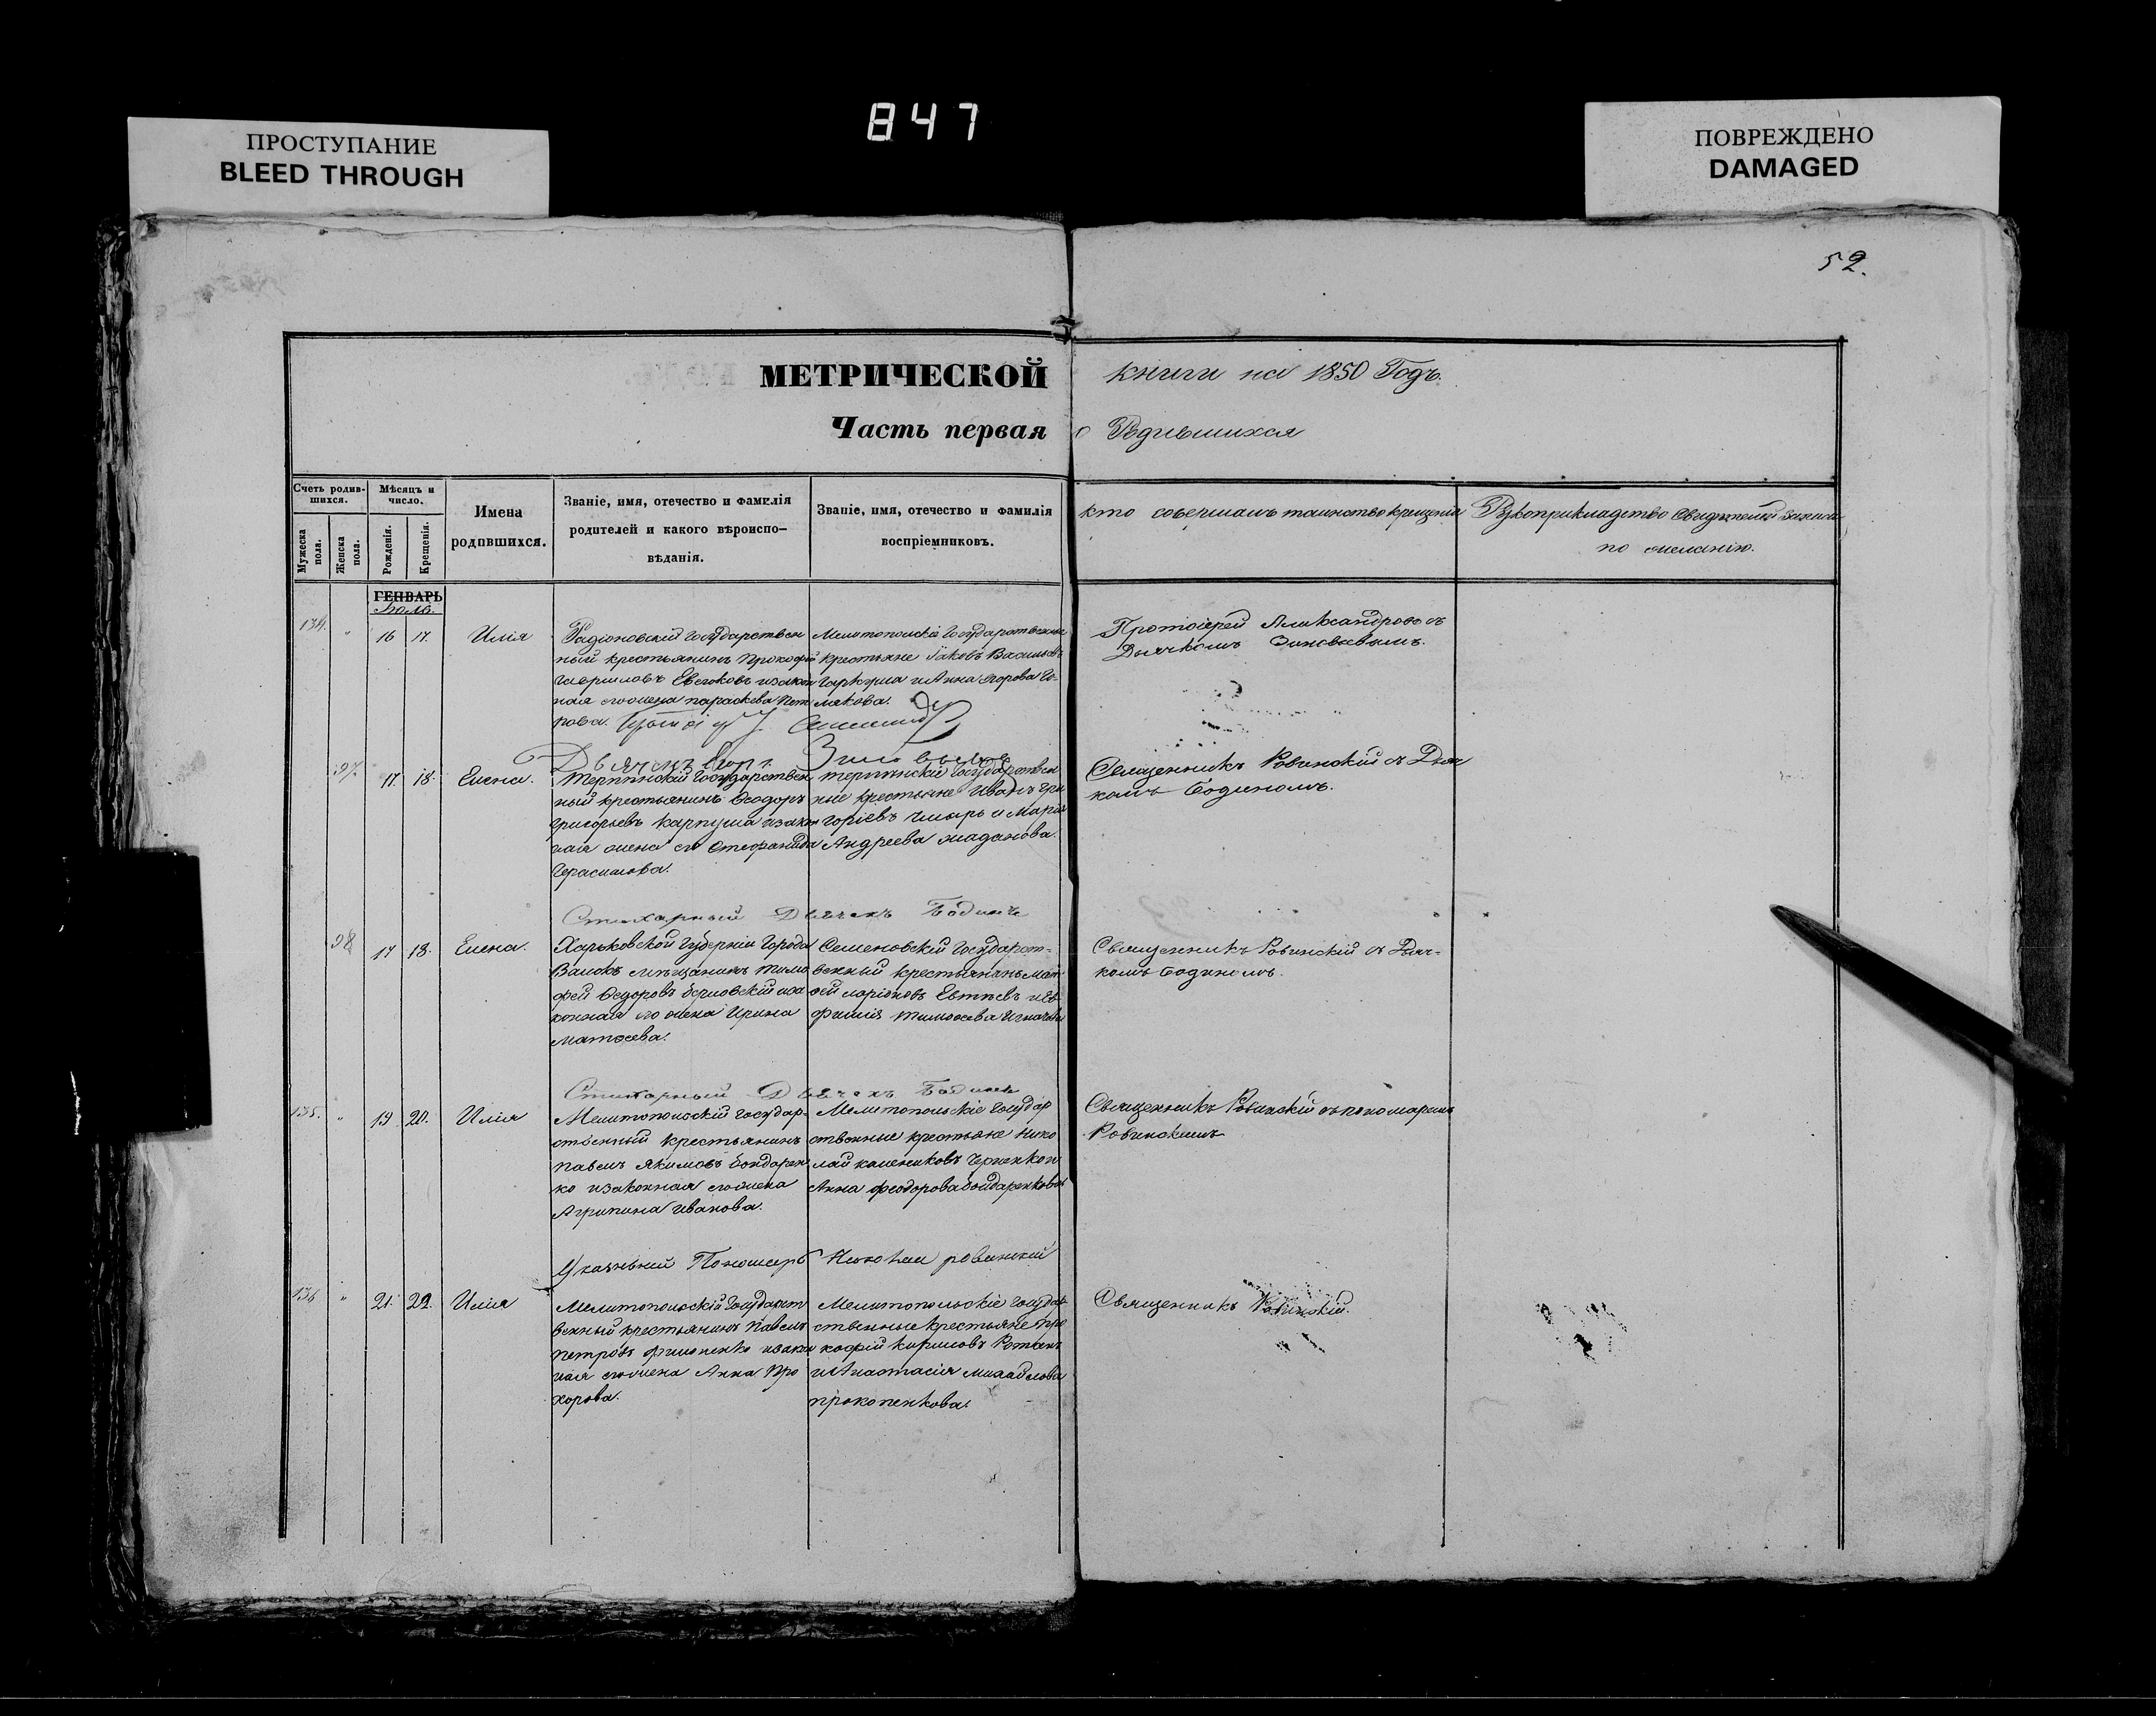 ПРОСТУПАНИЕ
BLEED THROUGH
847
ПОВРЕЖДЕНО
DAMAGED
52.
МЕТРИЧЕСКОЙ
книги на 1850 Годъ.
Часть первая
о Родившихся
Счетъ родив-
шихся.
Мужеска пола.
Женска пола.
Мѣсяцъ и
число.
Рожденія.
Крещенія.
Имена
родившихся.
Званіе, имя, отечество и фамилія
родителей и какого вѣроиспо-
вѣданія.
Званіе, имя, отечество и фамилія
воспріемниковъ.
кто совершалъ таинство крещенія
Рукоприкладство свидѣтелей записи
по желанію.
ГЕНВАРЬ
Іюль.
134. " 16 17. Илія
Радіоновскій государствен
ный крестьянинъ Прокофій
Гавриловъ Евсюковъ и закон
ная его жена параскева Пет
рова.
Мелитопольскіе Государственные
крестьяне Іаковъ Васильевъ
и Анна Егорова
Протоіерей Александровъ съ
Дьячкомъ Зиновьевымъ.
97. 17. 18. Елена.
Терпѣнскій Государствен
ный крестьянинъ Ѳеодоръ
Григорьевъ Карпуша и закон
ная жена его Стефанида
Герасимова.
терпѣнскіе Государствен
ные крестьяне Иванъ Гри
горіевъ и Марія
Андреева Жаданова.
Священникъ Ровинскій съ Дьяч
комъ Бодиномъ.
Стихарный Дьячекъ Бодинъ
98 17 18. Елена.
Харьковской Губерніи Города
Валокъ мѣщанинъ Тимо
фей Ѳедоровъ и за
конная его жена Ирина
Матѳеева.
Семеновскій Государст-
венный крестьянинъ Мат
ѳей Ларіоновъ Евтѣевъ и Ев
фимія Тимоѳеева
Священникъ Ровинскій съ Дьяч-
комъ Бодиномъ.
Стихарный Дьячекъ Бодинъ
135. " 19 20. Илія
Мелитопольскій государ-
ственный крестьянинъ
Павелъ Якимовъ Бондарен
ко и законная его жена
Агрипина Иванова.
Мелитопольскіе государ
ственные крестьяне Нико
лай Калениковъ Черненко и
Анна Феодорова Бондаренкова
Священникъ Ровинскій съ пономаремъ
Ровинскимъ
Указный Пономарь Николай ровинкій
136 " 21. 22. Илія
Мелитопольскій Государст
венный крестьянинъ Павелъ
Петровъ Филоненко и закон
ная его жена Анна Про
хорова.
Мелитопольскіе Государ
ственные крестьяне Про
кофій Кириловъ
и Анастасія Михайлова
Прокопенкова.
Священникъ Ровинскій.